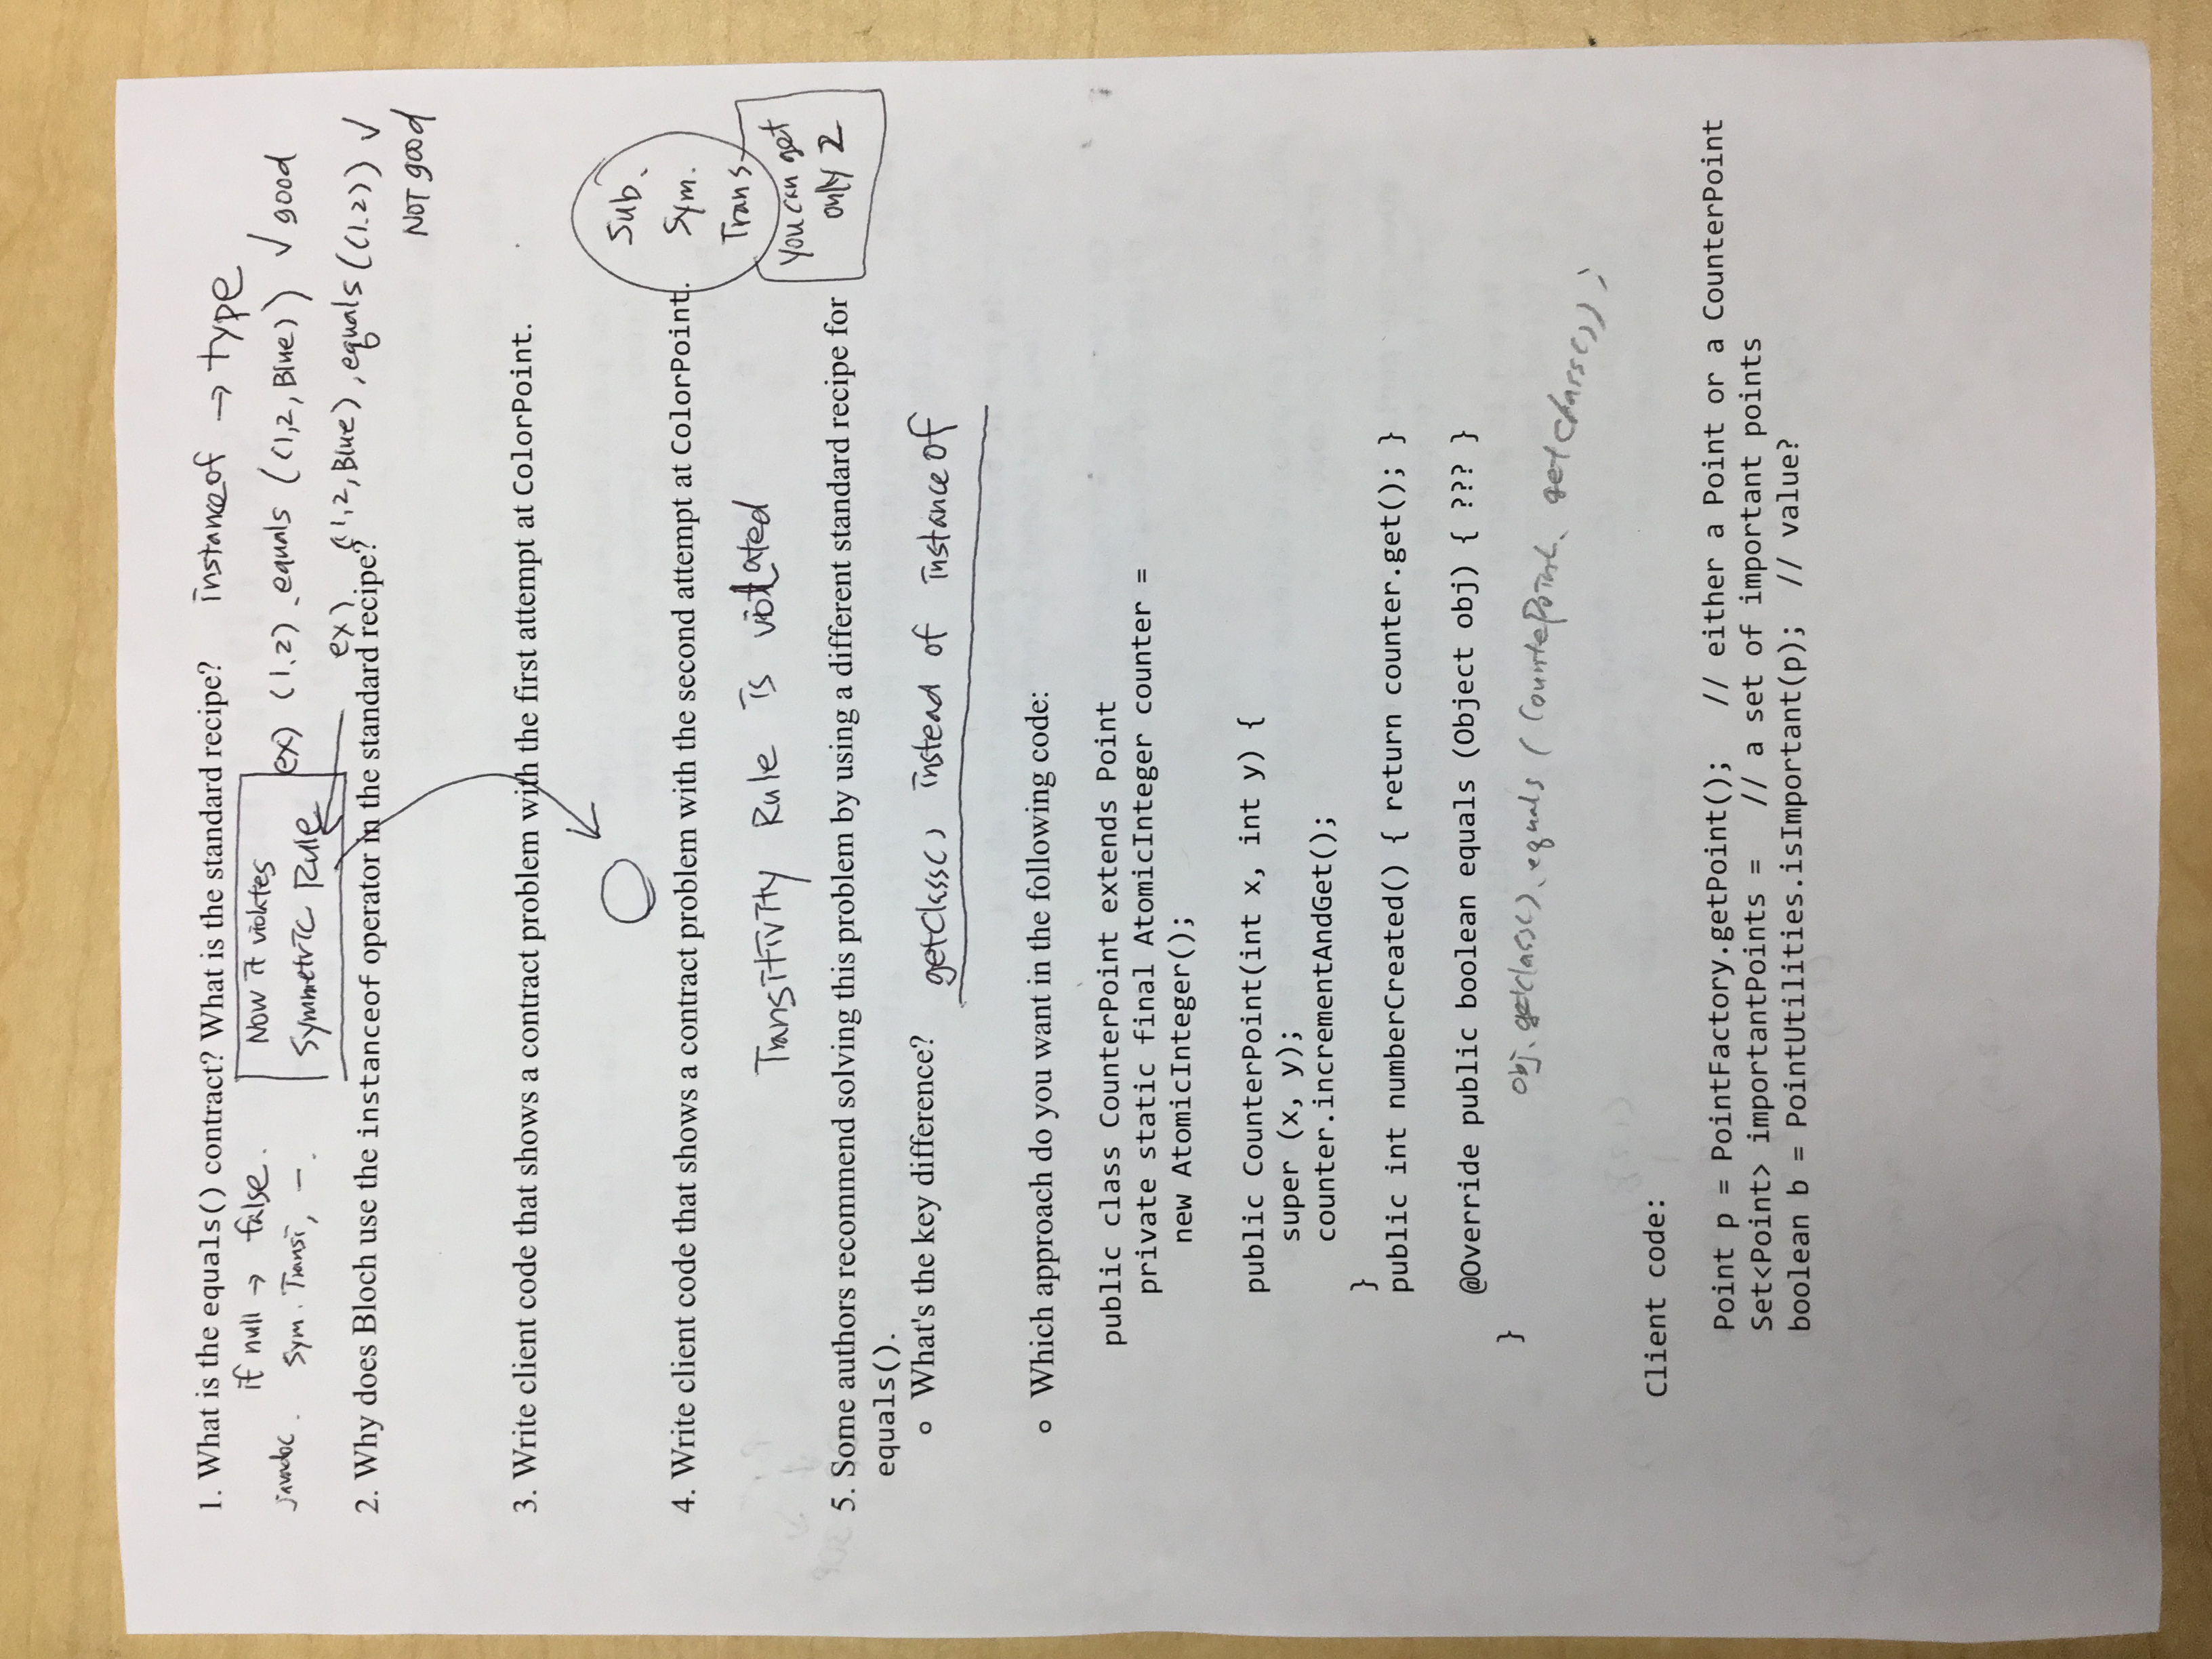 1. What is the equals() contract? What is the standard recipe?
instanceof → type
if null → false.
javadoc. Sym. Transi, —.
Now it violates
Symmetric Rule
ex) (1.2).equals ((1,2, Blue)) ✓ good
ex) (1,2,Blue).equals((1.2)) ✓
NOT good
2. Why does Bloch use the instanceof operator in the standard recipe?
3. Write client code that shows a contract problem with the first attempt at ColorPoint.
4. Write client code that shows a contract problem with the second attempt at ColorPoint.
Sub.
Sym.
Trans
You can get
only 2
Transitivity Rule is violated
5. Some authors recommend solving this problem by using a different standard recipe for
equals().
o What's the key difference?
getClass() instead of instanceof
o Which approach do you want in the following code:
public class CounterPoint extends Point
private static final AtomicInteger counter =
new AtomicInteger();
public CounterPoint(int x, int y) {
super (x, y);
counter.incrementAndGet();
}
public int numberCreated() { return counter.get(); }
@Override public boolean equals (Object obj) { ??? }
}
obj.getclass().equals ( CountePoint. getClass());
Client code:
Point p = PointFactory.getPoint(); // either a Point or a CounterPoint
Set<Point> importantPoints = // a set of important points
boolean b = PointUtilities.isImportant(p); // value?